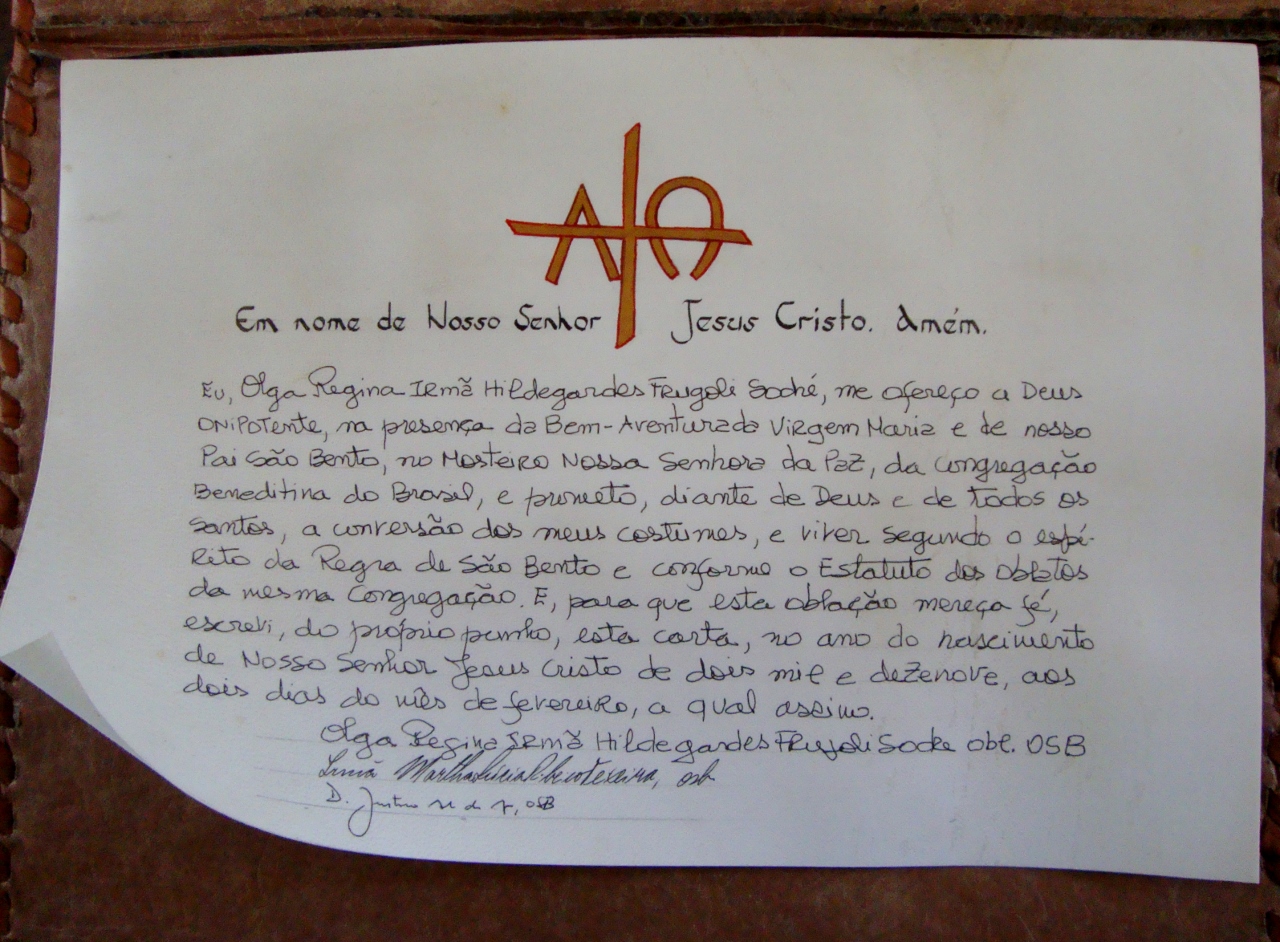 ΑΩ
Em nome de Nosso Senhor Jesus Cristo. Amém.
Eu, Olga Regina Irmã Hildegardes Frugoli Sodré, me ofereço a Deus
Onipotente, na presença da Bem-Aventurada Virgem Maria e de nosso
Pai São Bento, no Mosteiro Nossa Senhora da Paz, da Congregação
Beneditina do Brasil, e prometo, diante de Deus e de todos os
Santos, a conversão dos meus costumes, e viver segundo o espí-
rito da Regra de São Bento e conforme o Estatuto dos Oblatos
da mesma Congregação. E, para que esta oblação mereça fé,
escrevi, do próprio punho, esta carta, no ano do nascimento
de Nosso Senhor Jesus Cristo de dois mil e dezenove, aos
dois dias do mês de fevereiro, a qual assino.
Olga Regina Irmã Hildegardes Frugoli Sodré obl. OSB
Irmã Martha Lúcia Teixeira, osb
D. OSB